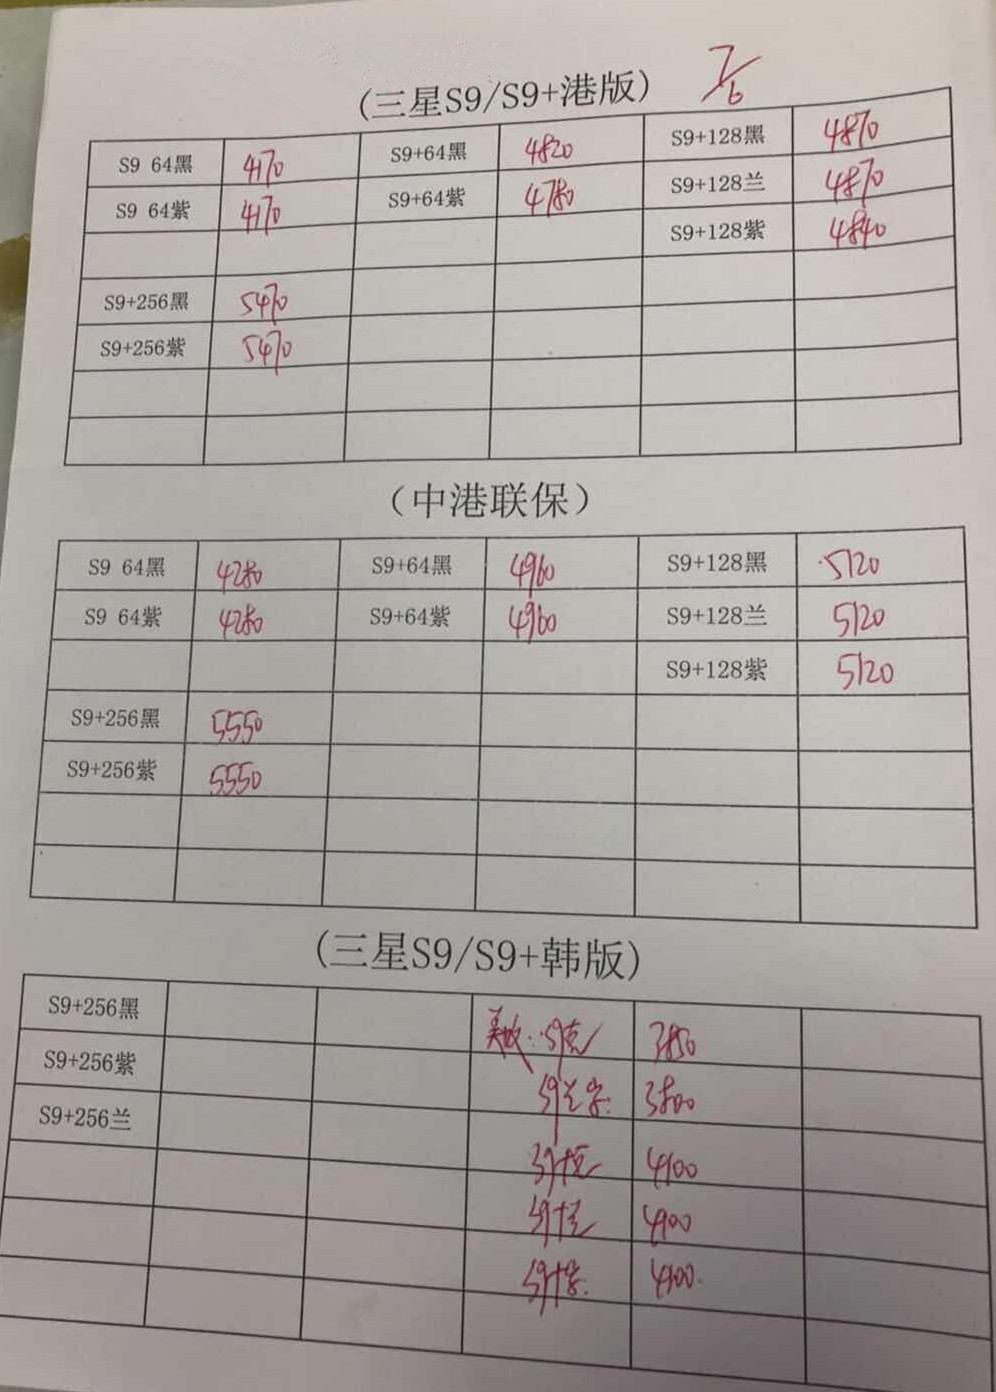 (三星S9/S9+港版) 7/6
S9 64黑 4170 S9+64黑 4820 S9+128黑 4870
S9 64紫 4170 S9+64紫 4780 S9+128兰 4870
S9+128紫 4840
S9+256黑 5470
S9+256紫 5470
(中港联保)
S9 64黑 4280 S9+64黑 4960 S9+128黑 5120
S9 64紫 4280 S9+64紫 4960 S9+128兰 5120
S9+128紫 5120
S9+256黑 5550
S9+256紫 5550
(三星S9/S9+韩版)
S9+256黑 美版: S9 3850
S9+256紫 S9兰紫. 3800
S9+256兰
S9+ 4100
S9+兰 4100
S9+紫. 4100.